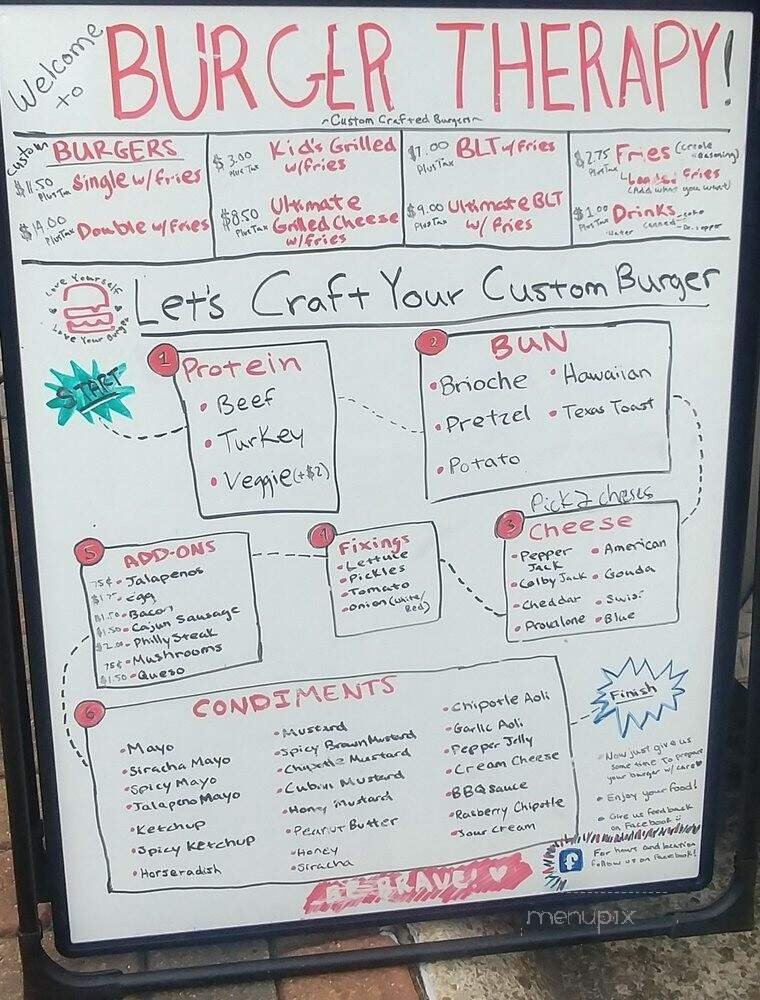 Welcome to BURGER THERAPY!
~Custom Crafted Burgers~
Custom BURGERS
$11.50 Plus Tax Single w/fries
$14.00 Plus Tax Double w/Fries
$3.00 Plus Tax Kid's Grilled w/fries
$8.50 Plus Tax Ultimate Grilled Cheese w/fries
$7.00 Plus Tax BLT w/Fries
$9.00 Plus Tax Ultimate BLT w/ Fries
$2.75 Plus Tax Fries (creole seasoning)
Loaded Fries
(Add what you want)
$1.00 Plus Tax Drinks
Water canned - Coke - Dr. Pepper
Love Yourself & Love Your Burger
Let's Craft Your Custom Burger
START
1 Protein
• Beef
• Turkey
• Veggie (+$2)
2 BUN
• Brioche
• Pretzel
• Potato
• Hawaiian
• Texas Toast
Pick 2 cheeses
3 Cheese
• Pepper Jack
• Colby Jack
• Cheddar
• Provalone
• American
• Gouda
• Swiss
• Blue
4 Fixings
• Lettuce
• Pickles
• Tomato
• onion (white/Red)
5 ADD-ONS
75¢ • Jalapenos
• egg
$1.50 • Bacon
$1.50 • Cajun Sausage
$2.00 • Philly Steak
75¢ • Mushrooms
$1.50 • Queso
6 CONDIMENTS
• Mayo
• Siracha Mayo
• Spicy Mayo
• Jalapeno Mayo
• Ketchup
• Spicy Ketchup
• Horseradish
• Mustard
• Spicy Brown Mustard
• Chipotle Mustard
• Cuban Mustard
• Honey Mustard
• Peanut Butter
• Honey
• Siracha
• Chipotle Aoli
• Garlic Aoli
• Pepper Jelly
• Cream Cheese
• BBQ sauce
• Rasberry Chipotle
• Sour cream
Finish
• Now just give us
some time to prepare
your burger w/ care
• Enjoy your food!
• Give us feedback
on Facebook
For hours and location
follow us on Facebook!
BE BRAVE!
f
menupix